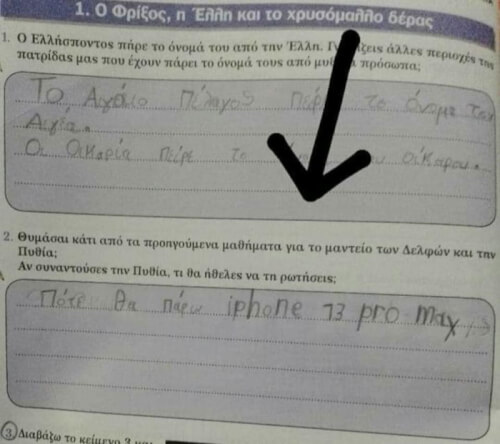 1. Ο Φρίξος, η Έλλη και το χρυσόμαλλο δέρας
1. Ο Ελλήσποντος πήρε το όνομά του από την Έλλη. άλλες περιοχές της
πατρίδας μας που έχουν πάρει το όνομά τους από πρόσωπα;
Το Αιγαίο Πέλαγος το όνομα του
Αιγέα.
Οι Οικαρία πείρε το ου οίκαρου.
2. Θυμάσαι κάτι από τα προηγούμενα μαθήματα για το μαντείο των Δελφών και την
Πυθία;
Αν συναντούσες την Πυθία, τι θα ήθελες να τη ρωτήσεις;
Πότε θα πάρω iphone 13 pro max,;
3 Διαβάζω το κείμενο 3